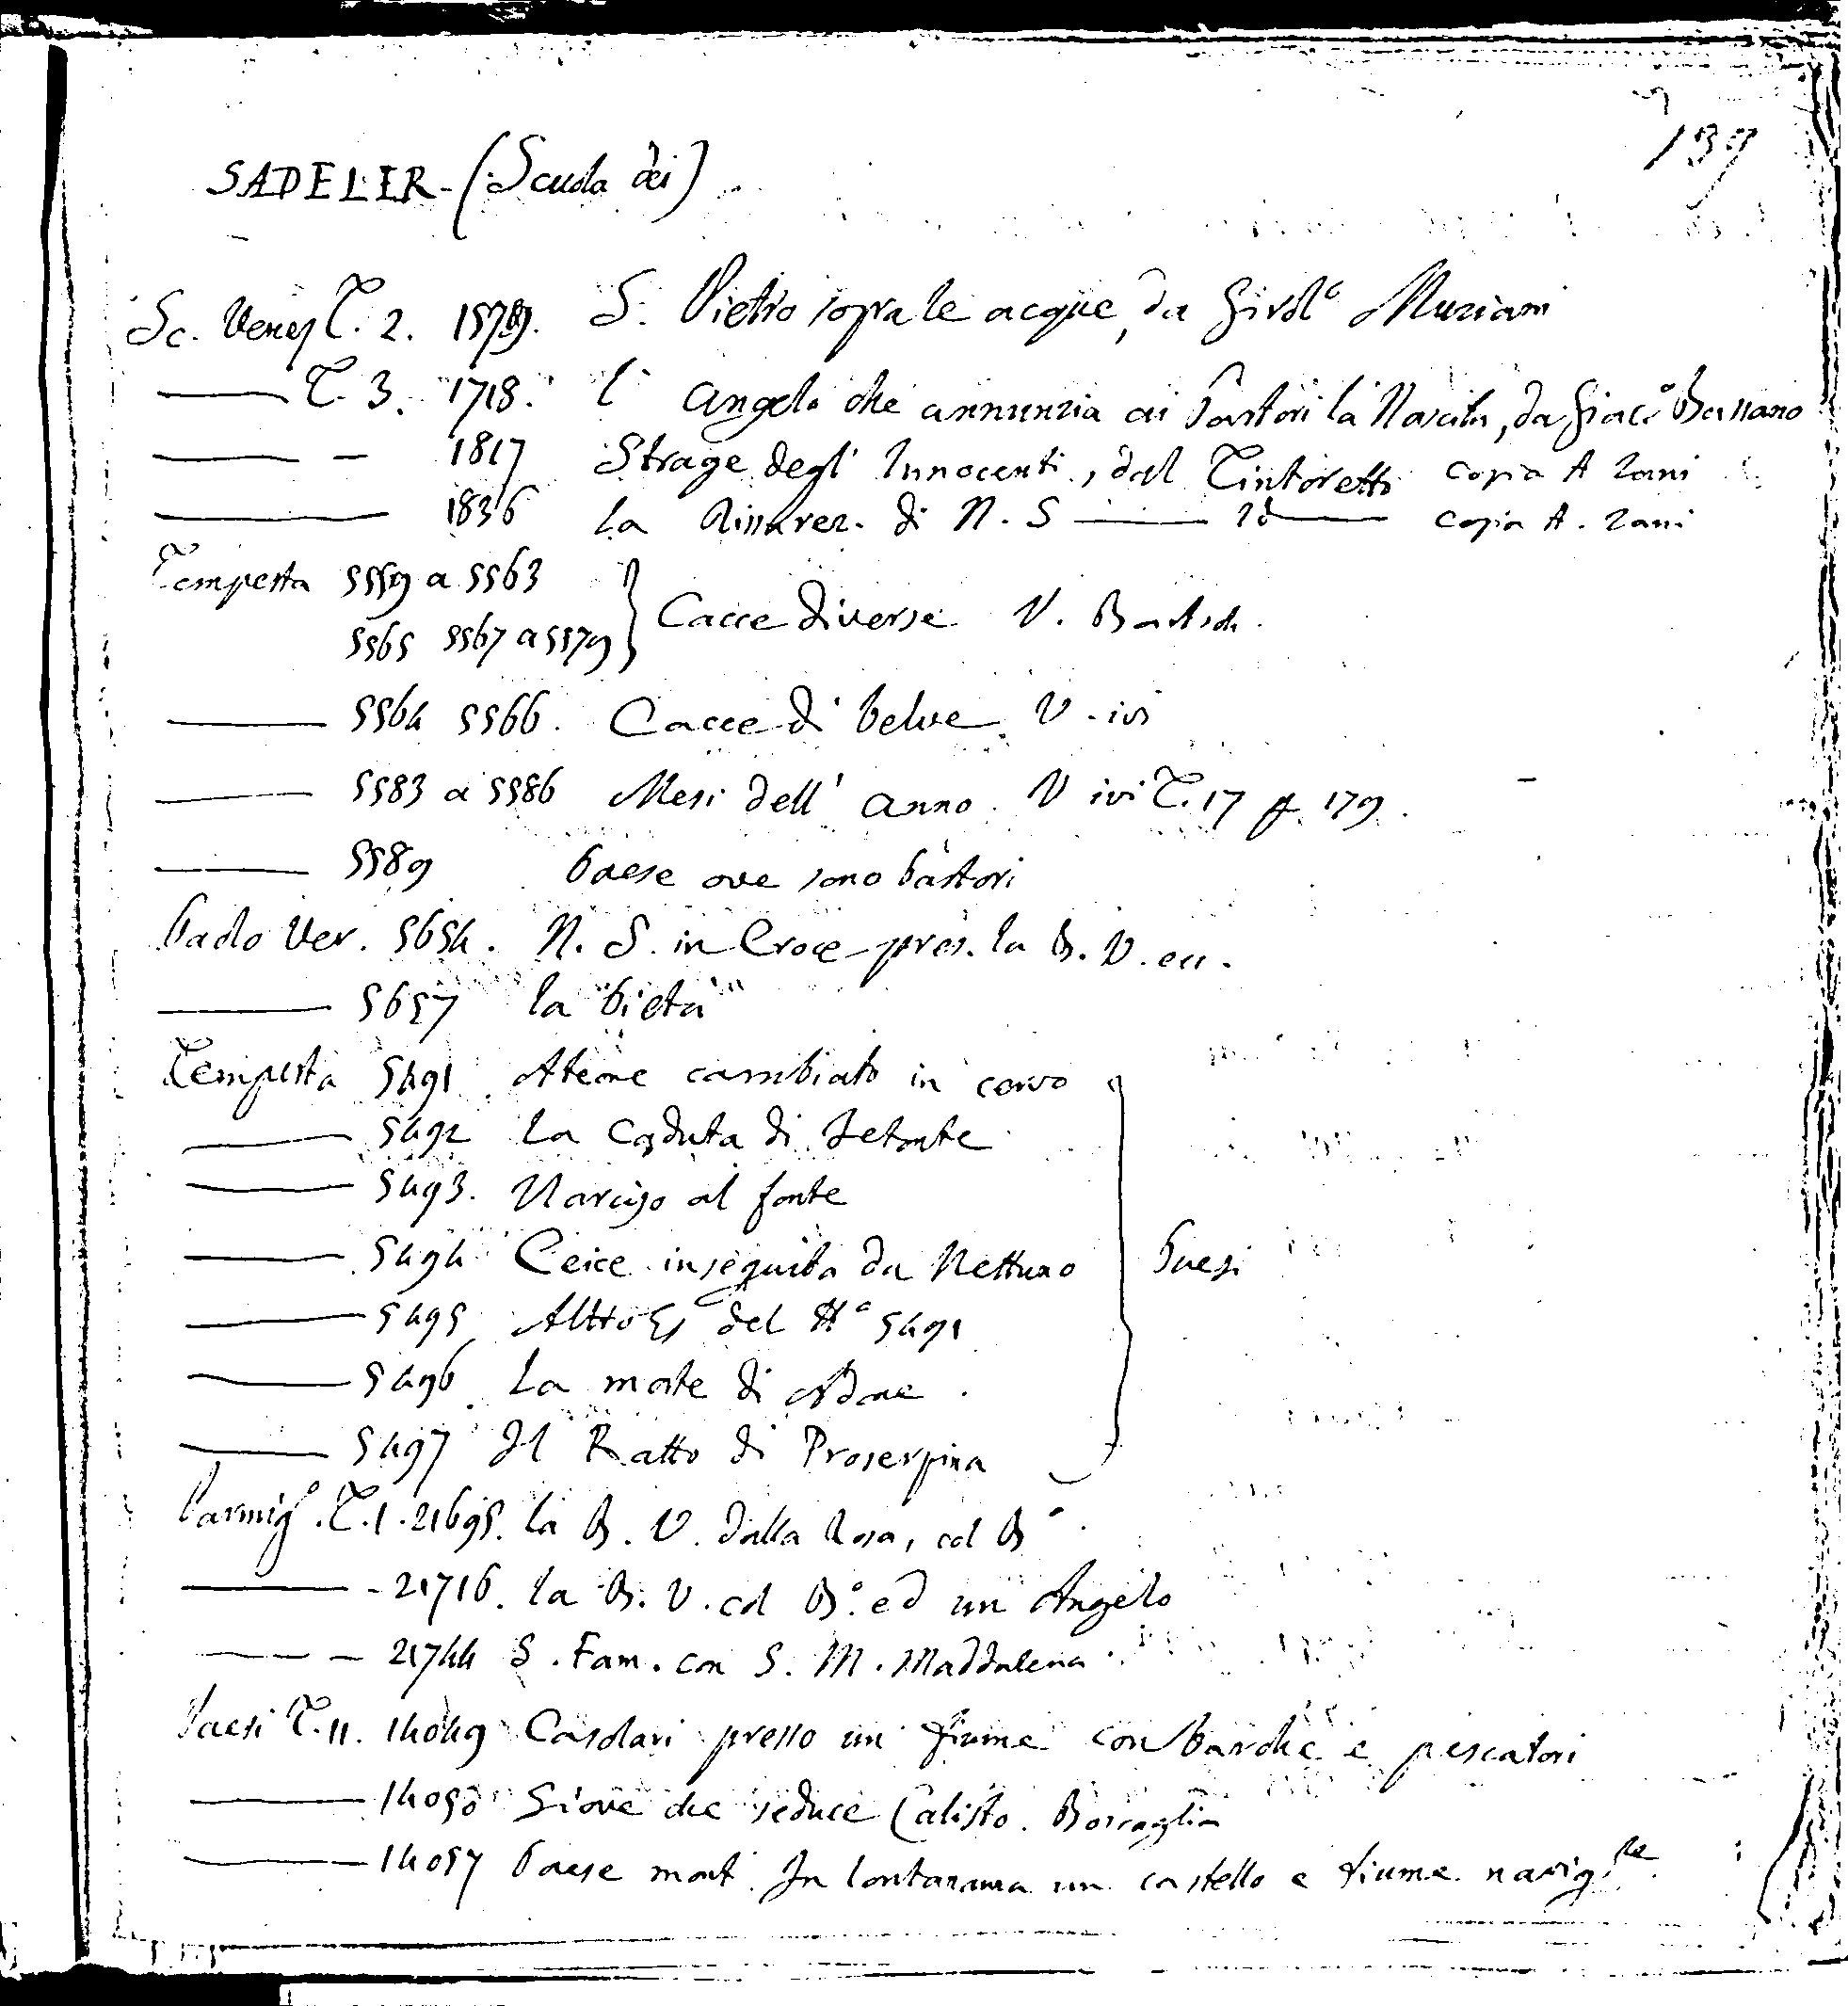 139
SADELER - (Scuola dei)
Sc. Venez T. 2. 1579. S. Pietro sopra le acque, da Girolo Muziani
—— T. 3. 1718. l' Angelo che annunzia ai Pastori la Nascita, da Giaco Bassano
—— — 1817 Strage degl' Innocenti, dal Tintoretto copia A Zani
—— 1836 La Risurrez. di N. S —— Id —— copia A. Zani
Tempesta 5559 a 5563
5565 5567 a 5579 } Cacce diverse V. Bartsch.
—— 5564 5566. Cacce di belve V. ivi
—— 5583 a 5586 Mesi dell' anno. V ivi T. 17 p. 179.
—— 5589 Paese ove sono Pastori
Paolo Ver. 5654. N. S. in Croce pres. la B. V. ecc.
—— 5657 la Pietà
Tempesta 5491 Ateone cambiato in cervo
—— 5492 La Caduta di Fetonte
—— 5493. Narciso al fonte
—— 5494 Ceice inseguita da Nettuno } Paesi
—— 5495 Altro Es del No 5491
—— 5496 La morte di Adone.
—— 5497 Il Ratto di Proserpina
Parmigo. T. 1. 21695. la B. V. dalla Rosa, col Bo.
—— - 21716. la B. V. col Bo. ed un Angelo
—— — 21744 S. Fam. con S. M. Maddalena
Paesi T. 11. 14049 Casolari presso un fiume con barche e pescatori
—— 14050 Giove che seduce Calisto. Boscaglia
—— 14057 Paese mont. In lontananza un castello e fiume navigle